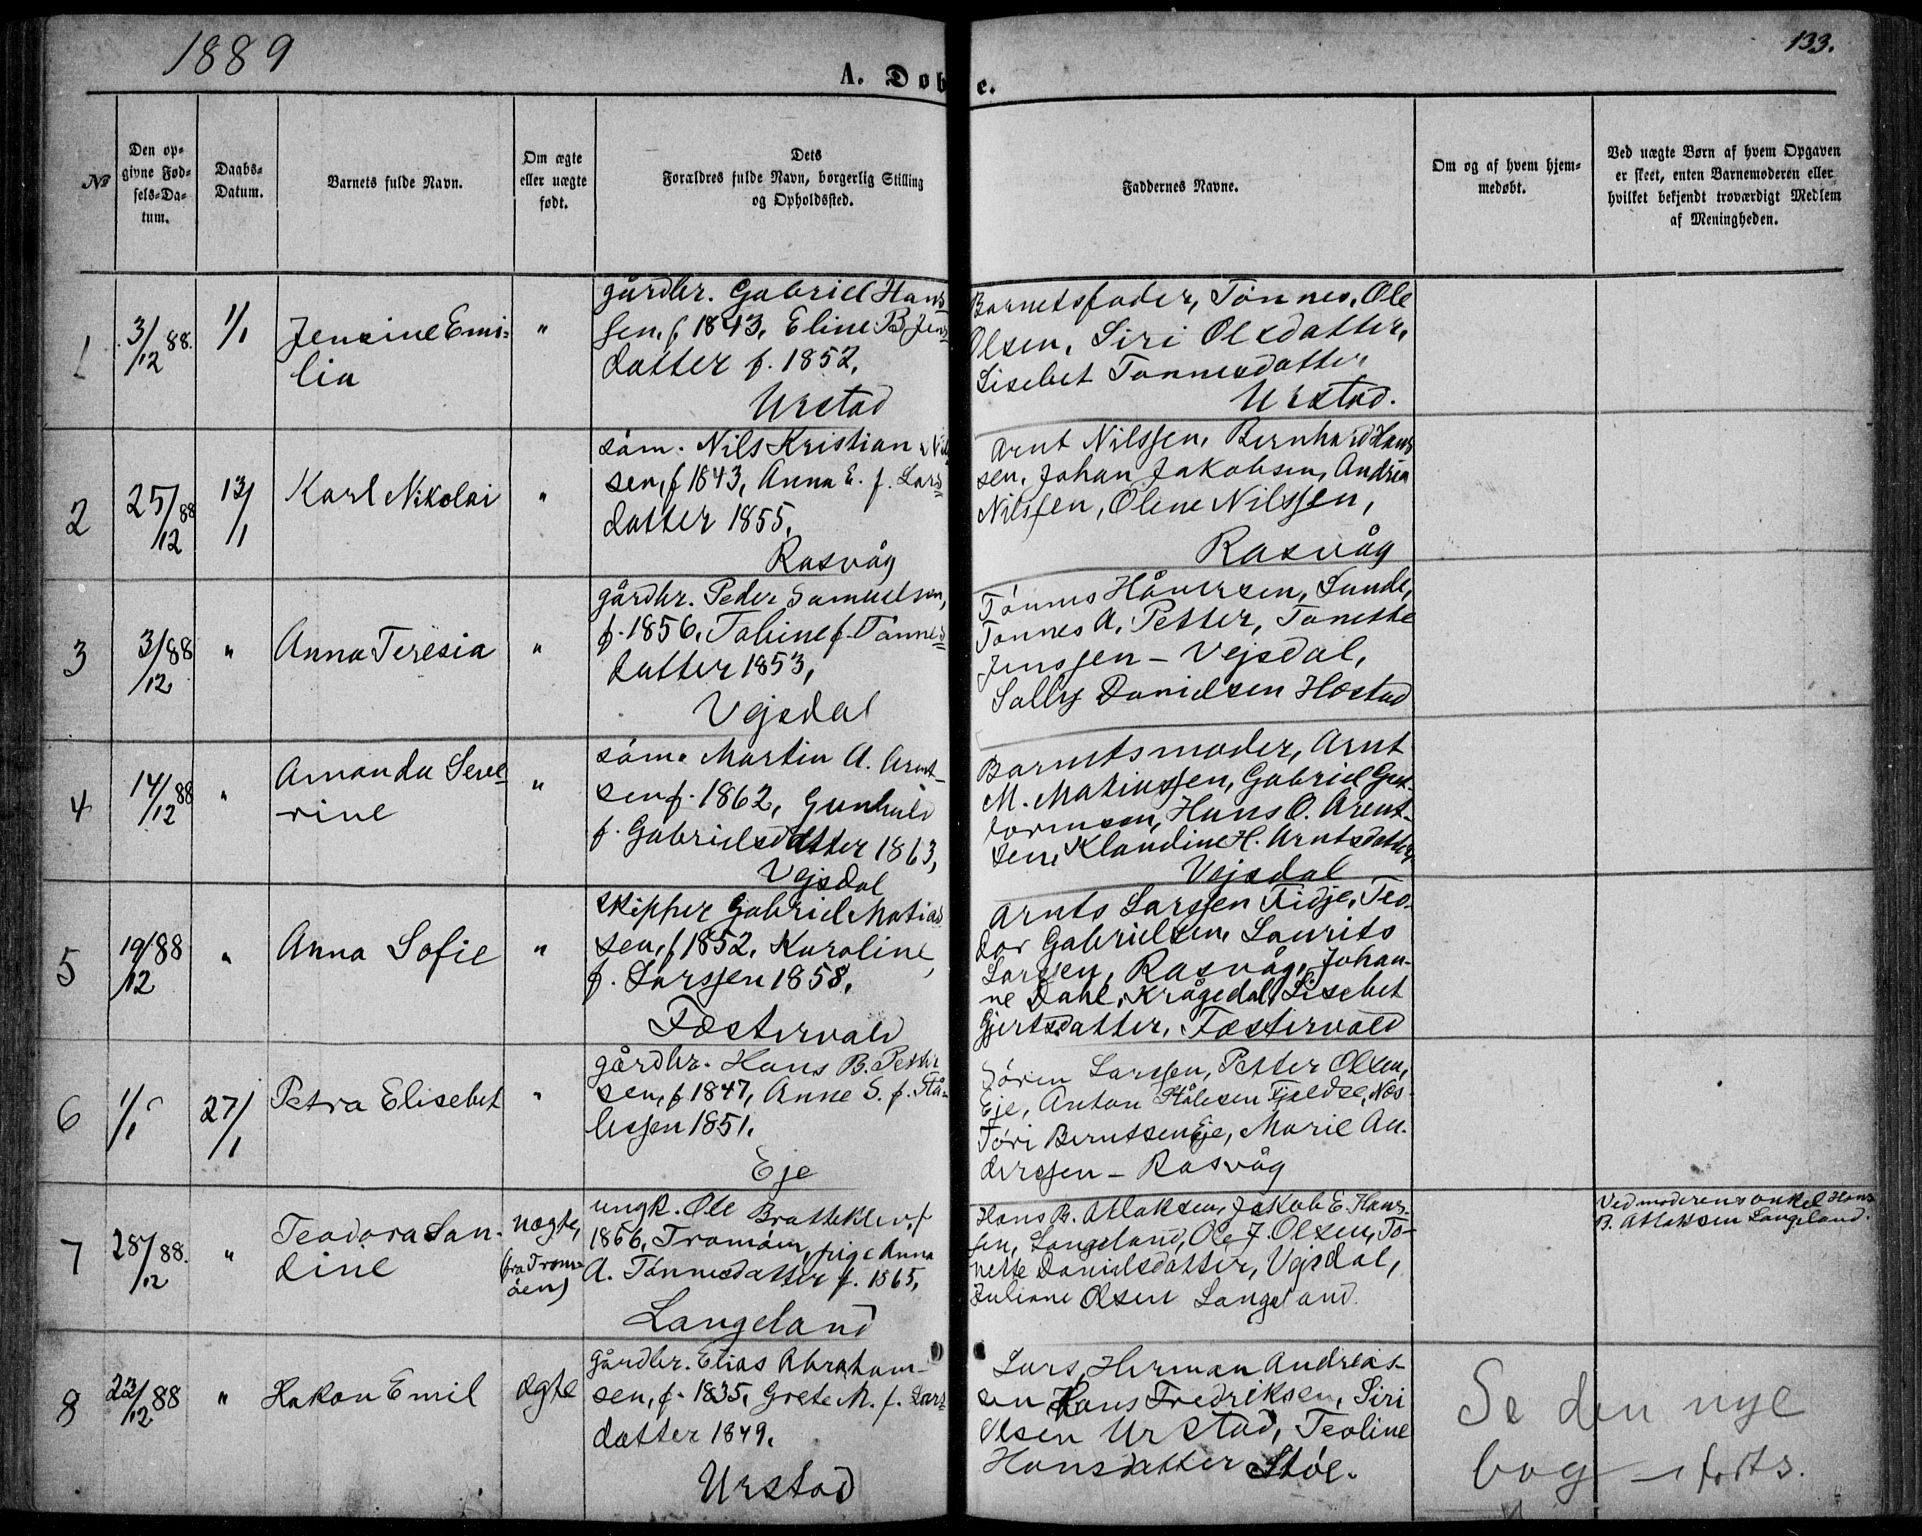 1889
133.
A. Døbte.
No
Den op=
givne Fød=
sels=Da=
tum.
Daabs=
Datum.
Barnets fulde Navn.
Om ægte
eller uægte
født.
Dets
Forældres fulde Navn, borgerlig Stilling
og Opholdssted.
Faddernes Navne.
Om og af hvem hjem=
medøbt.
Ved uægte Børn af hvem Opgaven
er skeet, enten Barnemoderen eller
hvilket bekjendt troværdigt Medlem
af Menigheden.
1
3/12 88.
1/1
Jensine Emi=
lia
"
gårdbr. Gabriel Hans
sen, f 1843, Eline B. Jens
datter f. 1852.
Urstad
Barnetsfader, Tønnes, Ole
Olsen, Siri Olsdatter,
Lisebet Tønnesdatter
Urstad.
2
25/12 88
13/1
Karl Nikolai
"
søm. Nils Kristian Nil
sen, f 1843, Anna E. f. Lars=
datter 1855.
Rasvåg
Arnt Nilssen, Bernhard Hans
sen, Johan Jakobsen, Andrea
Nilssen, Olene Nilssen,
Rasvåg
3
3/12 88
"
Anna Teresia
"
gårdbr. Peder Samuelsen,
f. 1856, Tobine f. Tønnes=
datter 1853,
Vejsdal
Tønnes Håversen, Sunde,
Tønnes A. Petter, Tonette
Jenssen – Vejsdal,
Sally Danielsen Hæstad
4
14/12 88
"
Amanda Seve=
rine
"
søm. Martin A. Arnt-
sen f. 1862, Gunhild
f. Gabrielsdatter 1863,
Vejsdal
Barnetsmoder, Arnt
M. Matiassen, Gabriel Gut-
tormsen, Hans O. Arent-
sen, Klandine H. Arntsdatter
Vejsdal
5
19/12 88
"
Anna Sofie
"
Skipper Gabriel Matias
sen, f 1852, Karoline,
f. Larssen 1858.
Fæstervold
Arnts Larssen Fidje, Teo-
dor Gabrielsen, Laurits
Larssen, Rasvåg, Johan-
ne Dahl, Krågedal, Lisebet
Gjertsdatter, Fæstervold
6
1/1
27/1
Petra Elisebet
"
gårdbr. Hans B. Petter
sen, f 1847, Anne S. f. Stå-
lessen 1851.
Eje
Søren Larssen, Petter Olsen,
Eje, Anton Stålesen Fjeldse, Næs-
Tøri Berntsen Eje, Marie An-
derssen – Rasvåg
7
28/12 88.
"
Teodora San-
dine
uægte,
(fra Trom=
øen)
ungk. Ole Brattekler, f
1866, Tromøen, pige Anna
A. Tønnesdatter f. 1865,
Langeland
Hans B. Atlaksen, Jakob E. Hans-
sen, Langeland, Ole J. Olsen, To-
nette Danielsdatter, Vejsdal,
Juliane Olsen Langeland.
Ved moderens onkel Hans
B. Atlaksen Langeland.
8
23/12 88
"
Hakon Emil
ægte
Gårdbr. Elias Abraham-
sen, f. 1835, Grete M. f. Lars=
datter 1849.
Urstad
Lars, Herman Andreas-
sen Hans Fredriksen, Siri
Olsen Urstad, Teoline
Hansdatter Støl.
Se den nye
bog – forts.